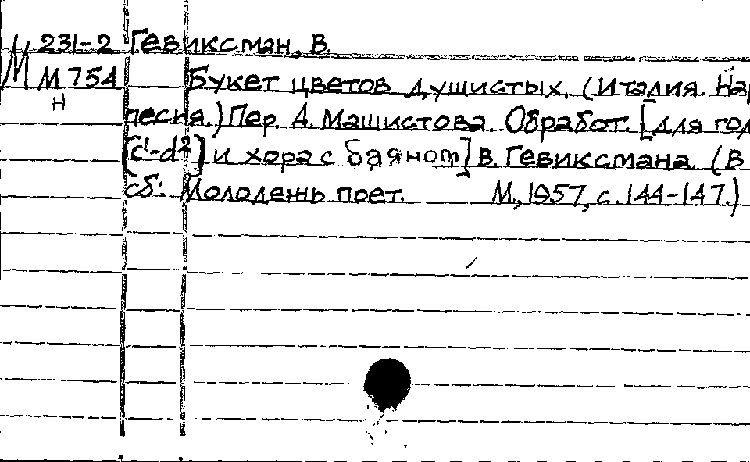 М 231-2 Гевиксман, В.
М 754 Букет цветов душистых. (Италия. Нар
Н песня.) Пер. А. Машистова. Обработ. [для гол
[c¹-d²] и хора с баяном] В. Гевиксмана. (В
сб: Молодежь поет. М., 1957, с. 144-147.)